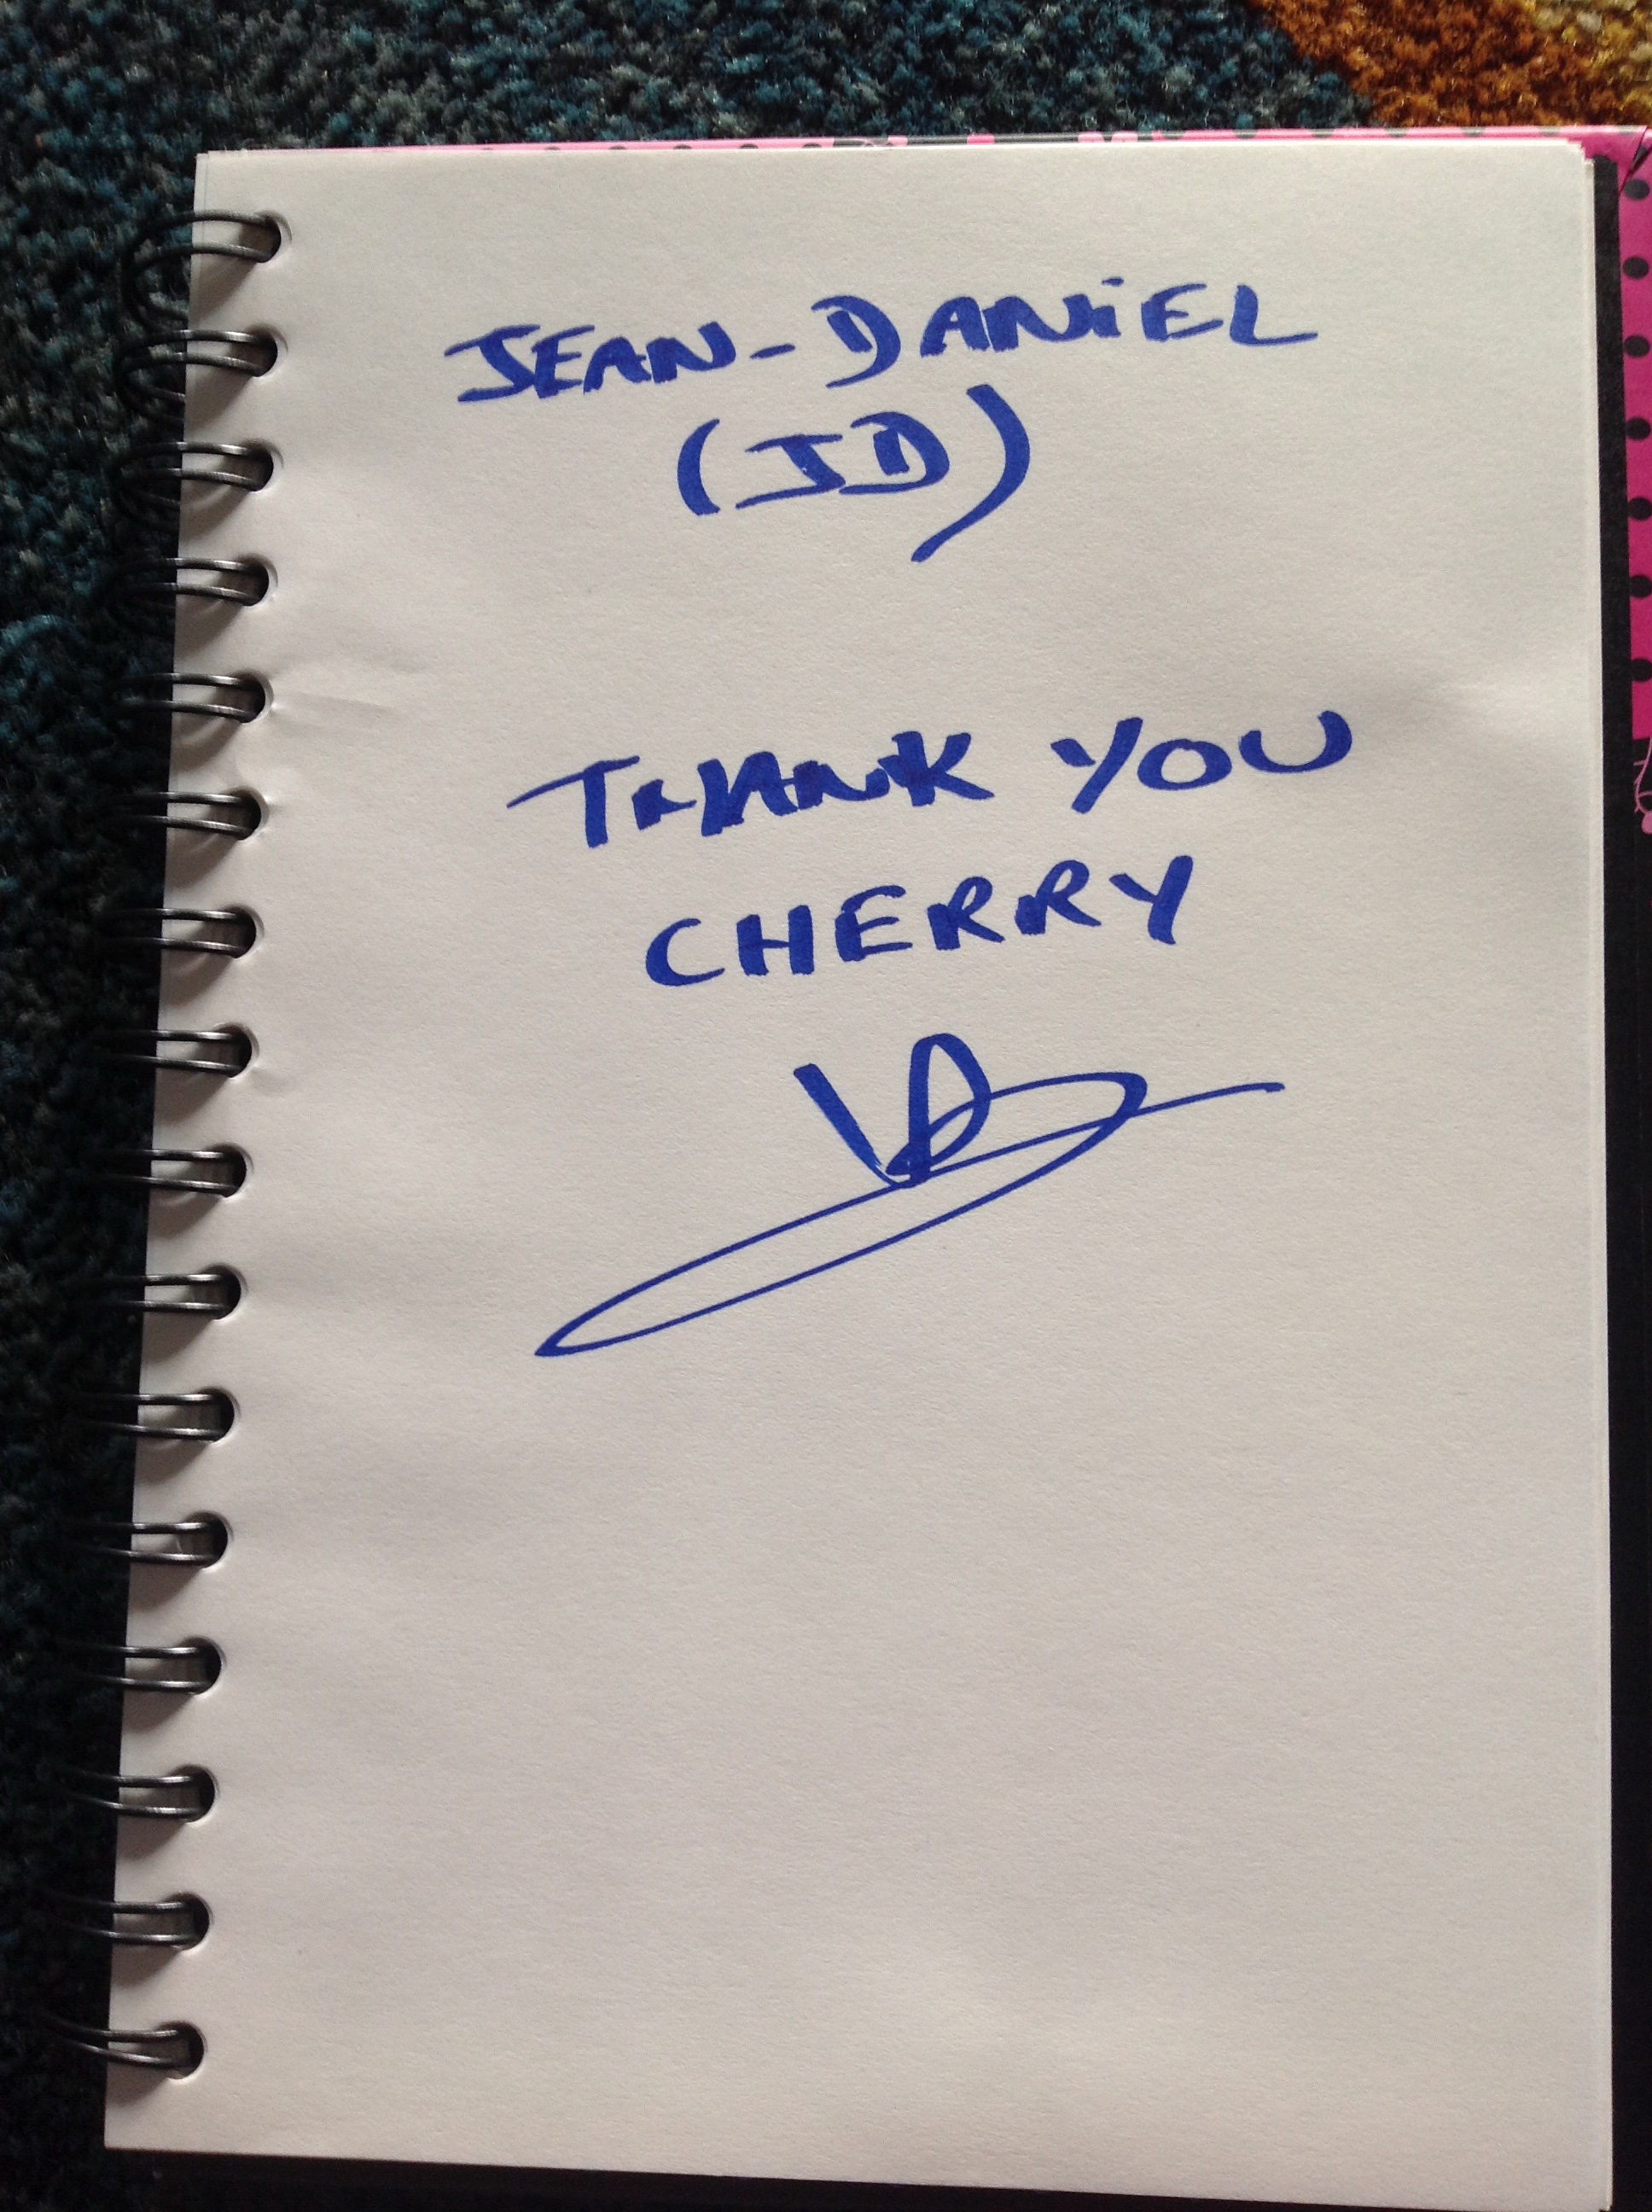 JEAN-DANiEL
(JD)
THANK YOU
CHERRY